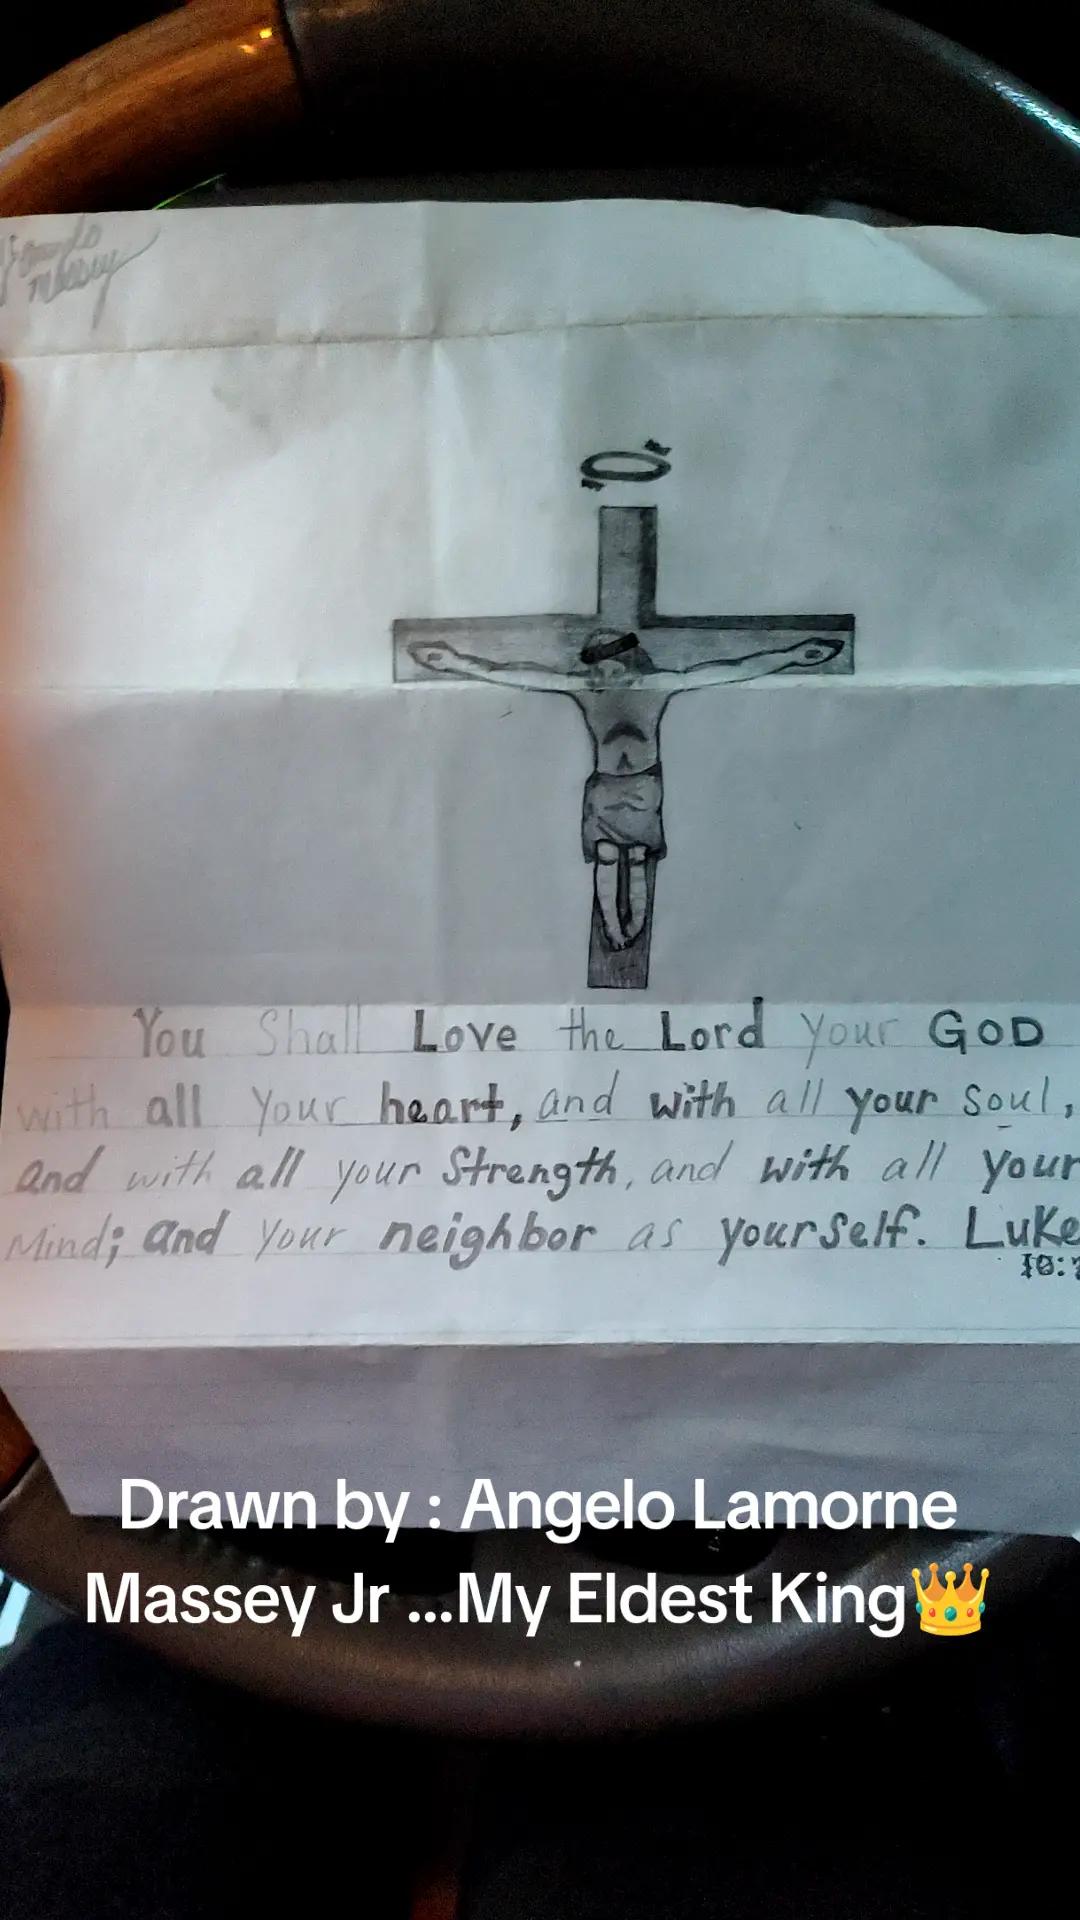 Angelo
Massey
You Shall Love the Lord your GOD
with all Your heart, and with all your Soul,
and with all your Strength, and with all your
Mind; and Your neighbor as yourself. Luke
10:
Drawn by : Angelo Lamorne
Massey Jr ...My Eldest King👑